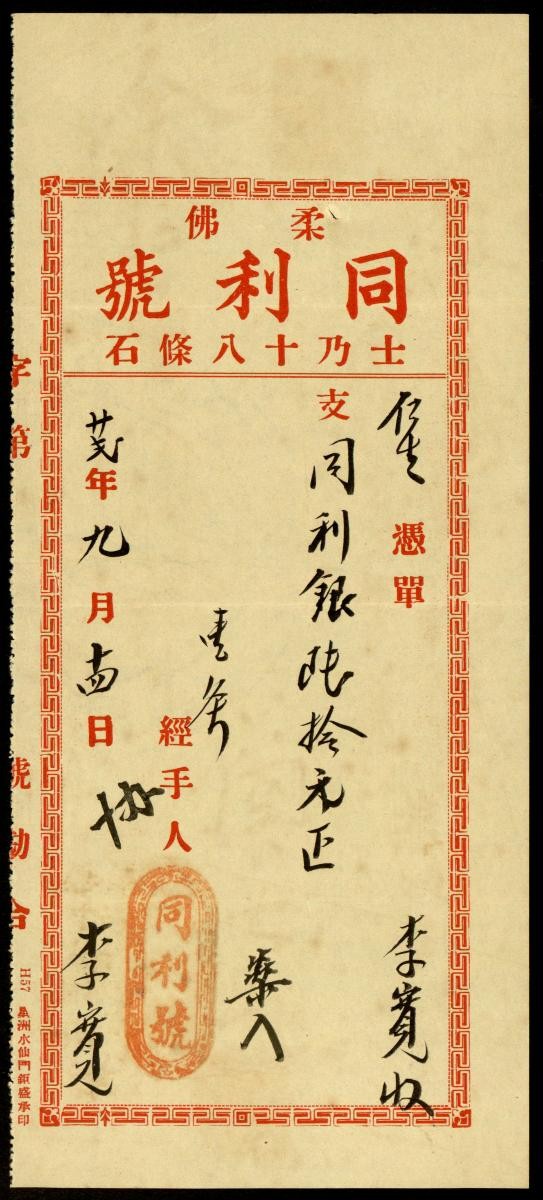 柔佛
同利號
士乃十八條石
憑單
支同利銀陸拾元正
李寬收
經手人
協
同利號
年九月十四日
李寬
字第 號勘合
H57 星洲水仙門鉅盛承印